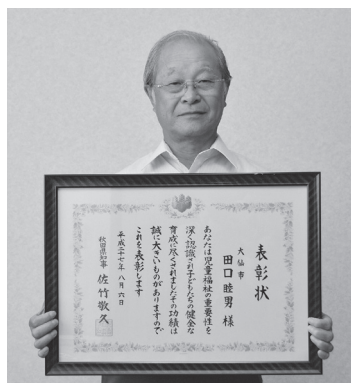 表彰状
大仙市
田口睦男 様
あなたは児童福祉の重要性を
深く認識され子どもたちの健全な
育成に尽くされましたその功績は
誠に大きいものがありますので
これを表彰します
平成二十七年八月六日
秋田県知事 佐竹敬久